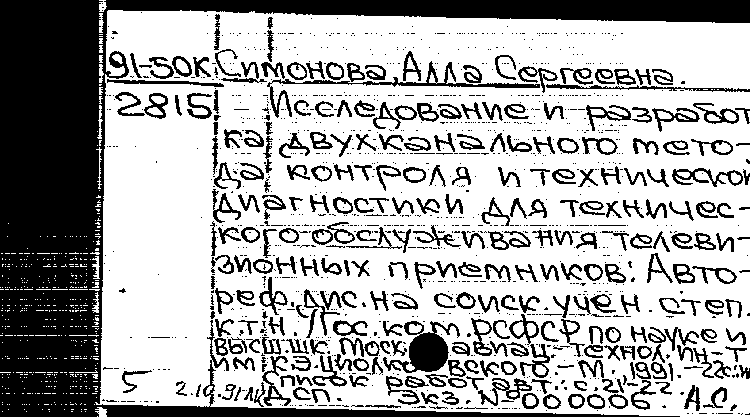 91-50К Симонова, Алла Сергеевна.
2815 Исследование и разработ-
ка двухканального мето-
да контроля и технической
диагностики для техничес-
кого обслуживания телеви-
зионных приемников: Авто-
реф. дис. на соиск. учен. степ.
к.т.н. /Гос. ком. РСФСР по науке и
высш. шк. Моск. авиац.-технол. ин-т
им К.Э. Циолковского. - М. 1991. - 22с.: ил
Список работ авт.: с. 21-22
5 Дсп. Экз. № 000006 А-С.